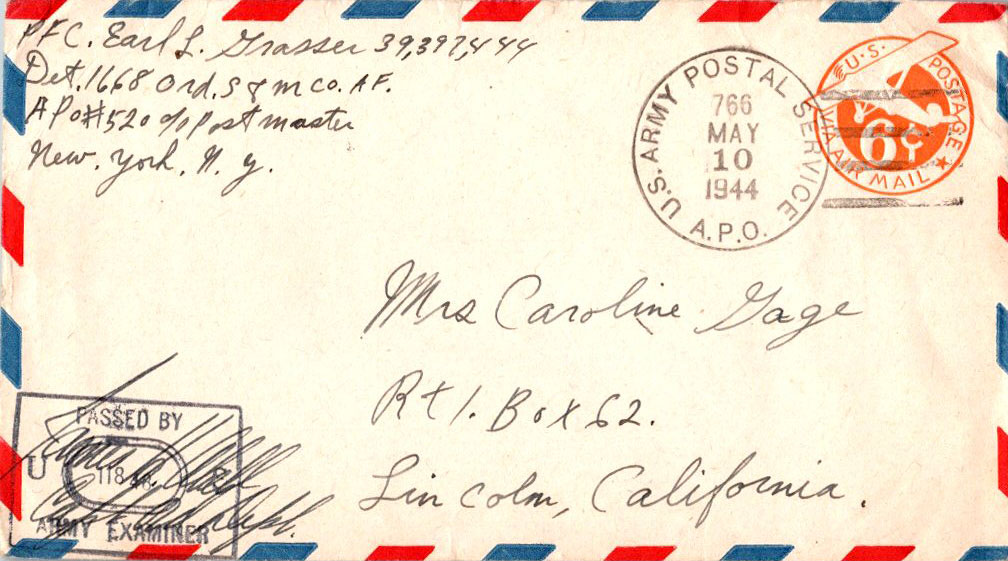 PFC. Earl L. Grasser 39,397,444
Det. 1668 Ord. S & M Co. AF.
APO #520 c/o Postmaster
New. York, N. Y.
U.S. ARMY POSTAL SERVICE
766
MAY
10
1944
A.P.O.
U.S. POSTAGE
6¢
VIA AIR MAIL
Mrs Caroline Gage
Rt 1. Box 62.
Lincoln, California.
PASSED BY
U S
ARMY EXAMINER